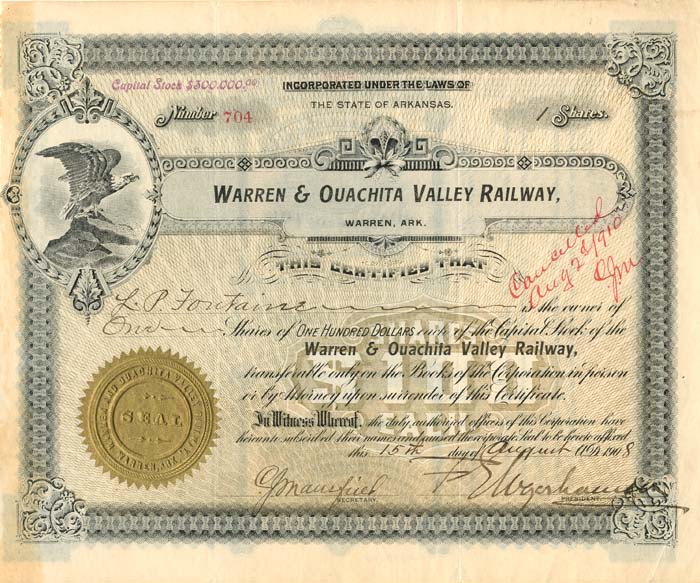 Capital Stock $300,000.00
INCORPORATED UNDER THE LAWS OF
THE STATE OF ARKANSAS.
Number 704
1 Shares.
WARREN & OUACHITA VALLEY RAILWAY,
WARREN, ARK.
THIS CERTIFIES THAT
Cancelled
Aug 26/1910
CJM
L. P. Fontaine is the owner of
One Shares of ONE HUNDRED DOLLARS each of the Capital Stock of the
Warren & Ouachita Valley Railway,
transferable only on the Books of the Corporation, in person
or by Attorney upon surrender of this Certificate.
In Witness Whereof, the duly authorized officers of this Corporation have
hereunto subscribed their names and caused the corporate Seal to be hereto affixed
this 15th day of August A.D. 1908
SEAL
CJ Mansfield
SECRETARY.
PRESIDENT.
$100